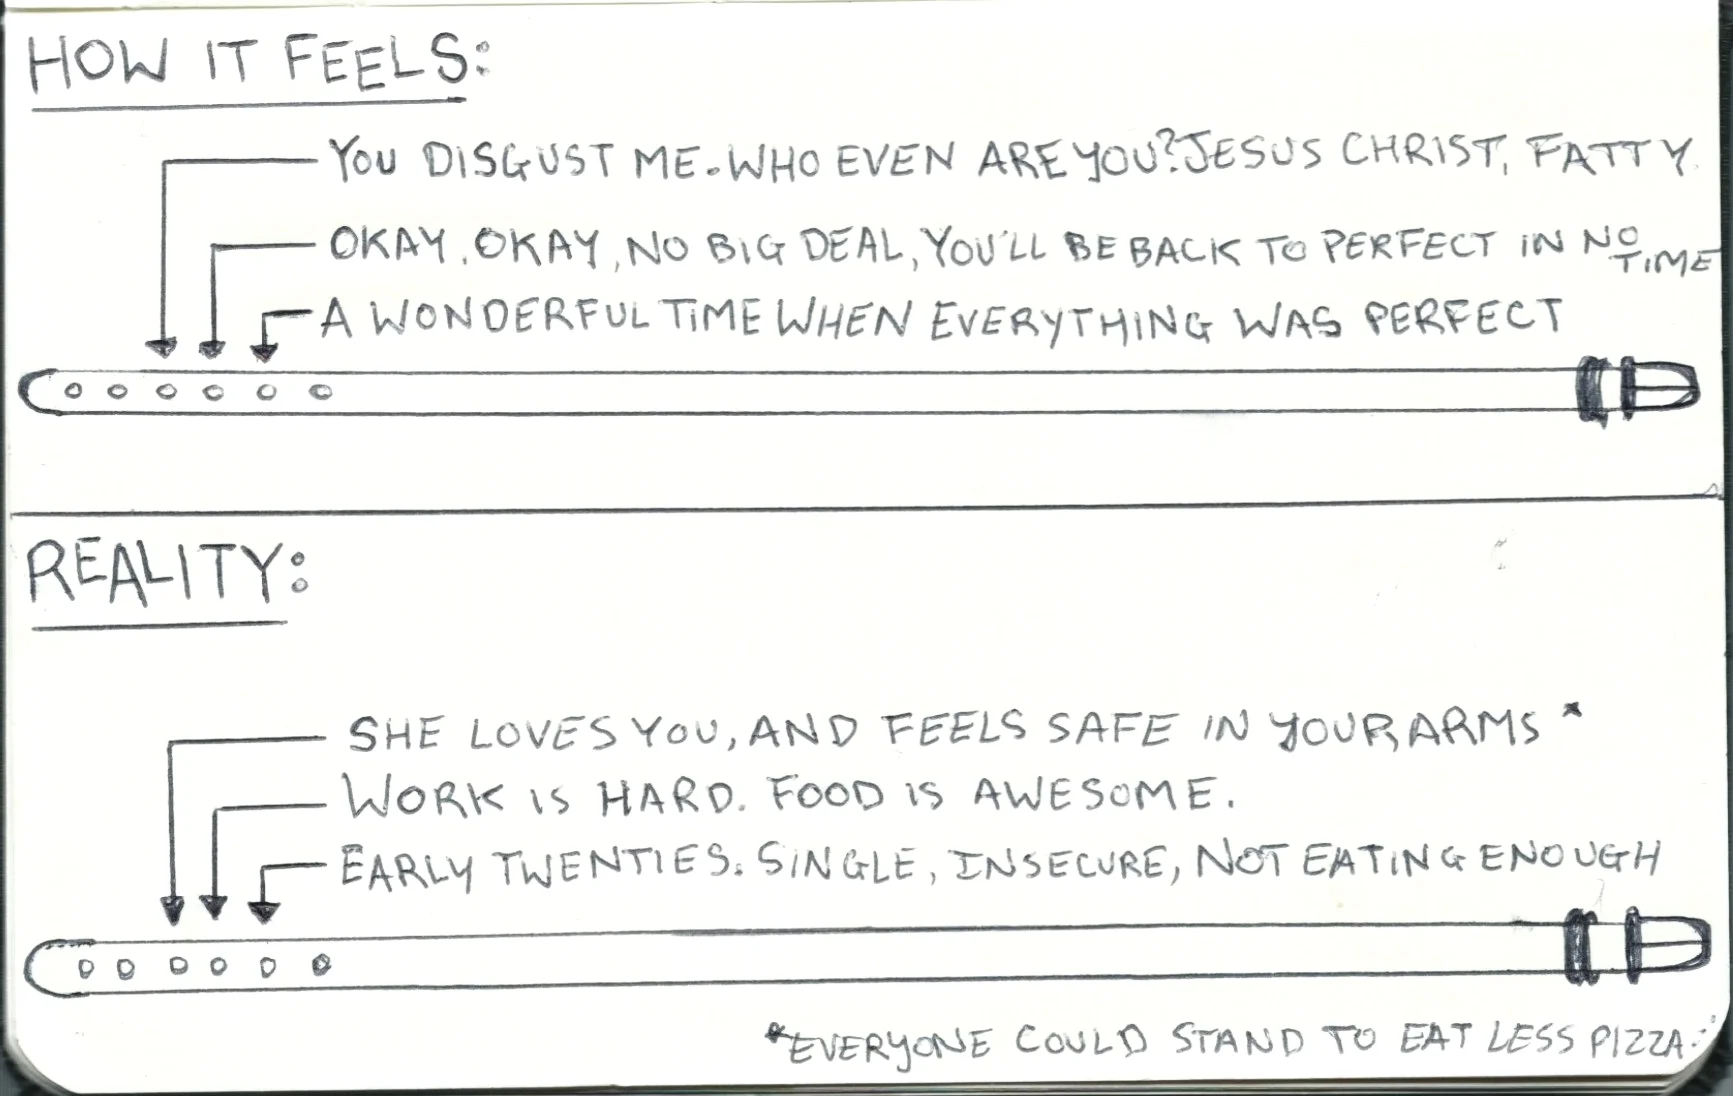 HOW IT FEELS:
YOU DISGUST ME. WHO EVEN ARE YOU? JESUS CHRIST, FATTY.
OKAY, OKAY, NO BIG DEAL, YOU'LL BE BACK TO PERFECT IN NO TIME
A WONDERFUL TIME WHEN EVERYTHING WAS PERFECT
REALITY:
SHE LOVES YOU, AND FEELS SAFE IN YOUR ARMS *
WORK IS HARD. FOOD IS AWESOME.
EARLY TWENTIES. SINGLE, INSECURE, NOT EATING ENOUGH
*EVERYONE COULD STAND TO EAT LESS PIZZA.